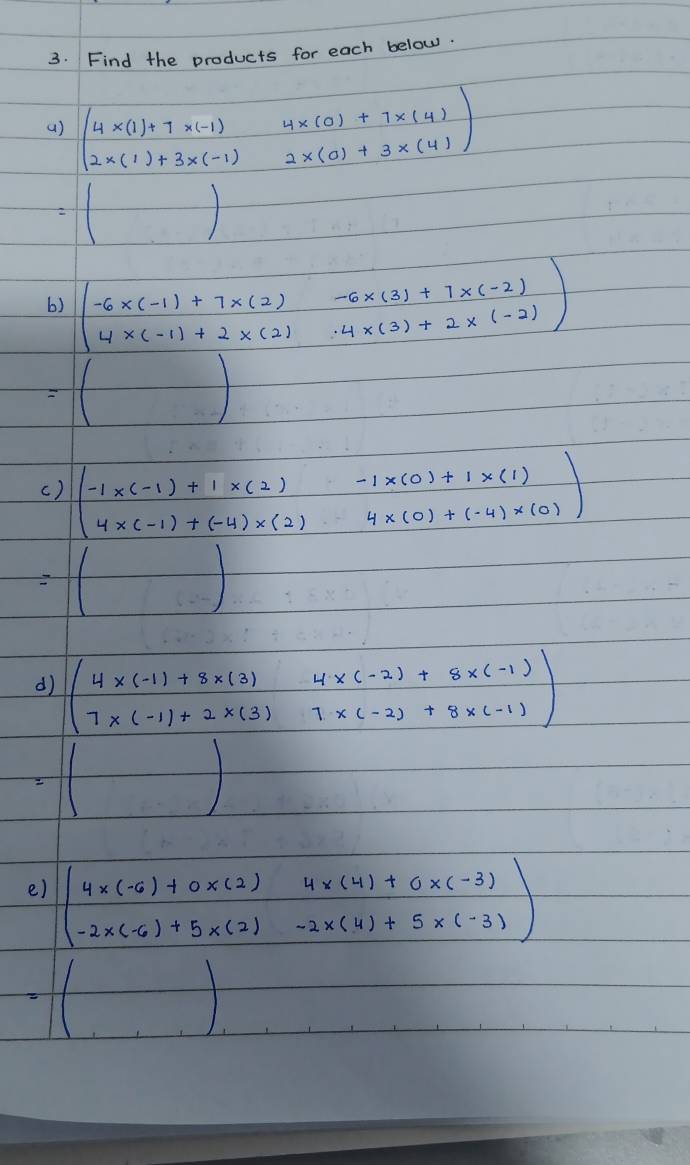 3. Find the products for each below.
a) ( 4×(1)+7×(-1) 4×(0) + 7×(4) )
2×(1)+3×(-1) 2×(0) + 3×(4)
= ( )
b) ( -6×(-1) + 7×(2) -6×(3) + 7×(-2) )
4×(-1) + 2×(2) .4×(3) + 2×(-2)
= ( )
c) ( -1×(-1) + 1×(2) -1×(0) + 1×(1) )
4×(-1) + (-4)×(2) 4×(0) + (-4)×(0)
= ( )
d) ( 4×(-1) + 8×(3) 4×(-2) + 8×(-1) )
7×(-1) + 2×(3) 7×(-2) + 8×(-1)
= ( )
e) ( 4×(-6) + 0×(2) 4×(4) + 0×(-3) )
-2×(-6) + 5×(2) -2×(4) + 5×(-3)
= ( )